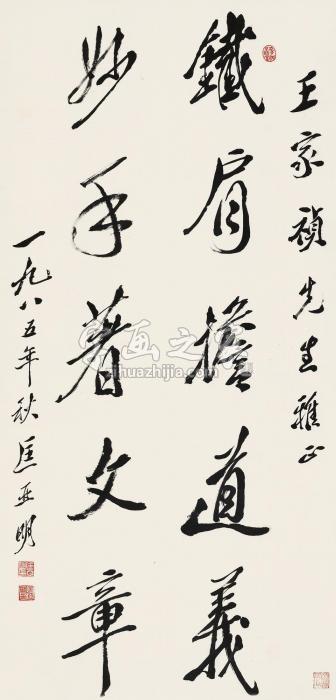 王家祯先生雅正
鐵肩擔道義
妙手著文章
一九八五年秋匡亚明
字画之家
zihuazhijia.com